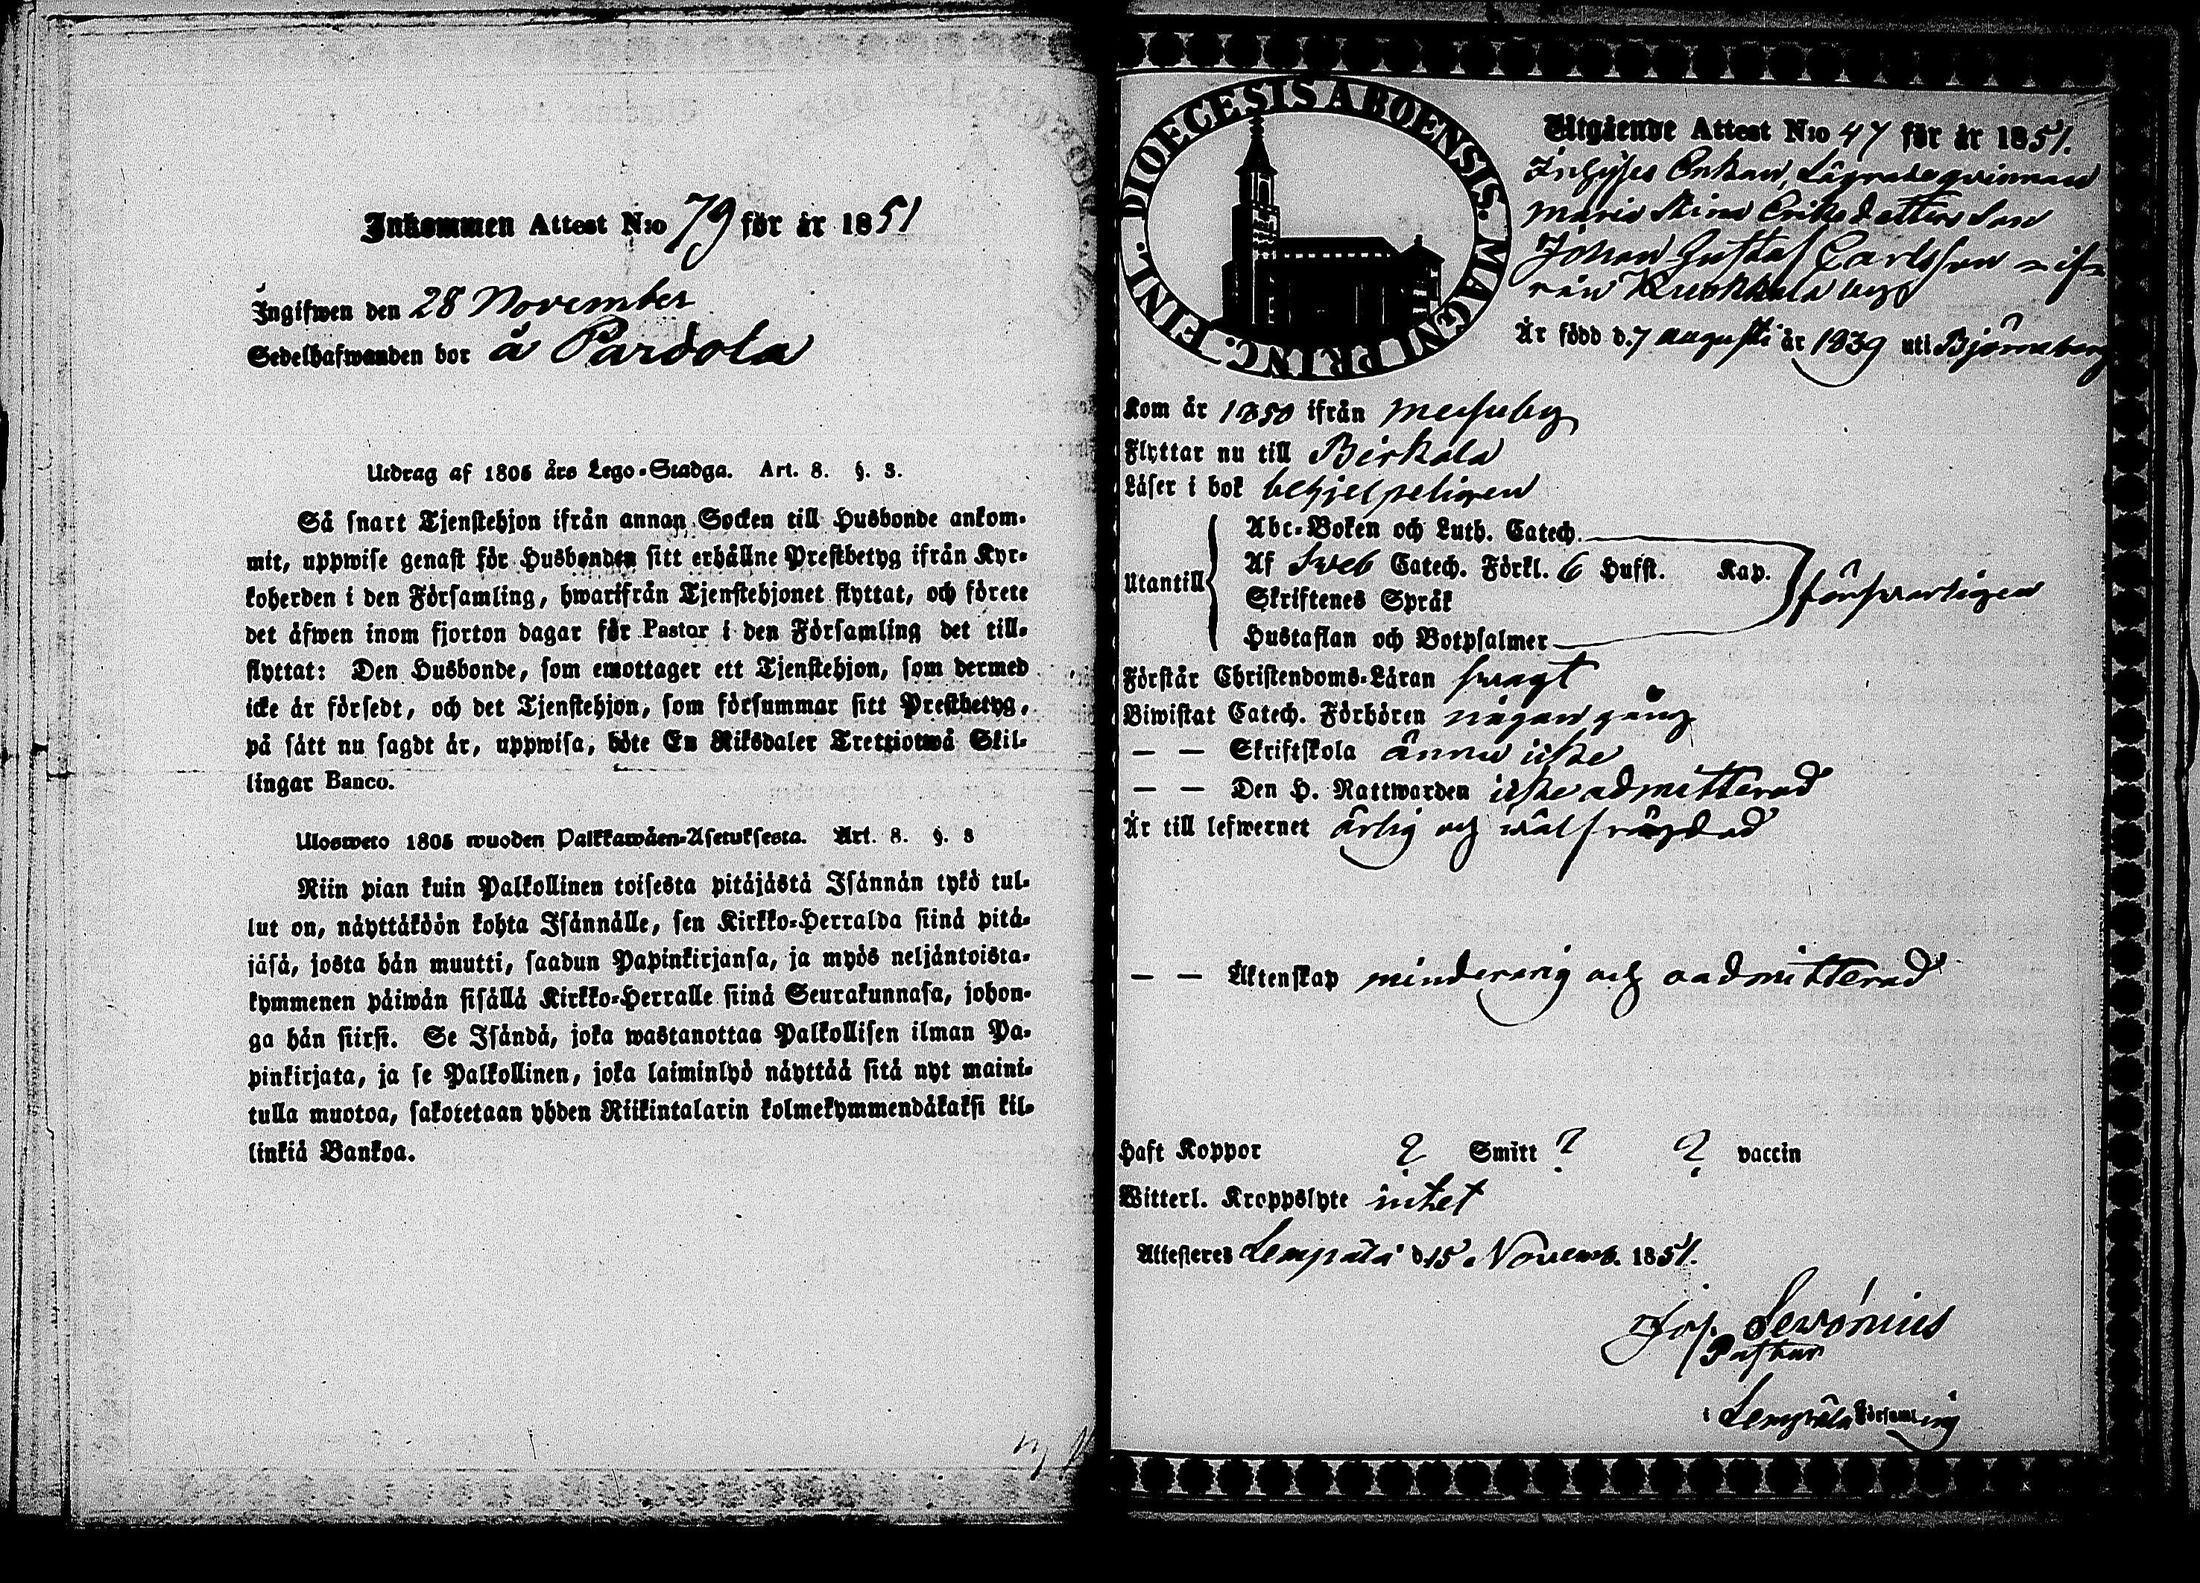 Inkommen Attest N:o 79 för år 1851
Ingifwen den 28 November
Sedelhafwanden bor å Pardola
Utdrag af 1805 års Lego-Stadga. Art. 8. §. 3.
Så snart Tjenstehjon ifrån annan Socken till Husbonde ankom-
mit, uppwise genast för Husbonden sitt erhållne Prestbetyg ifrån Kyr-
koherden i den Församling, hwarifrån Tjenstehjonet flyttat, och förete
det äfwen inom fjorton dagar för Pastor i den Församling det till-
flyttat: Den Husbonde, som emottager ett Tjenstehjon, som dermed
icke är försedt, och det Tjenstehjon, som försummar sitt Prestbetyg,
på sätt nu sagdt är, uppwisa, böte En Riksdaler Trettiotwå Skil-
lingar Banco.
Ulosweto 1805 wuoden Palkkawäen-Asetuksesta. Art. 8. §. 3
Niin pian kuin Palkollinen toisesta pitäjästä Isännän tykö tul-
lut on, näyttäköön kohta Isännälle, sen Kirkko-Herralda siinä pitä-
jäsä, josta hän muutti, saadun Papinkirjansa, ja myös neljäntoista-
kymmenen päiwän sisällä Kirkko-Herralle siinä Seurakunnasa, johon-
ga hän siirsi. Se Isändä, joka wastanottaa Palkollisen ilman Pa-
pinkirjata, ja se Palkollinen, joka laiminlyö näyttää sitä nyt maini-
tulla muotoa, sakotetaan yhden Riikintalarin kolmekymmendäkaksi kil-
linkiä Bankoa.
DIOECESIS ABOENSIS. MAGNI PRINC. FINL.
Utgående Attest N:o 47 för år 1851.
Inhyses Enkan, Lägrade qvinnan
Maria Stina Eriksdotters Son
Johan Gustaf Carlsson if-
rån Kuokkala by
Är född d. 7 Augusti år 1839 uti Björneborg
Kom år 1850 ifrån Messuby
Flyttar nu till Birkala
Läser i bok behjelpeligen
Utantill
Abc-Boken och Luth. Catech.
Af Sveb Catech. Förkl. 6 Hufst. Kap.
Skriftenes Språk
Hustaflan och Botpsalmer
försvarligen
Förstår Christendoms-Läran svagt
Biwistat Catech. Förhören någon gång
— — Skriftskola ännu icke
— — Den H. Nattwarden icke admitterad
Är till lefwernet ärlig och wälfräjdad
— — Äktenskap minderårig och oadmitterad
Haft Koppor ? Smitt ? ? vaccin
Witterl. Kroppslyte intet
Attesteres Lempälä d. 15 Novemb. 1851.
Jos. Sevónius
Pastor
i Lempälä Församling